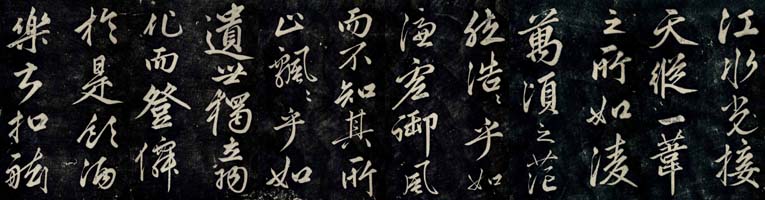 江水光接
天縱一葦
之所如凌
萬頃之茫
然浩〻乎如
馮虛御風
而不知其所
止飄〻乎如
遺世獨立羽
化而登僊
於是飲酒
樂甚扣舷